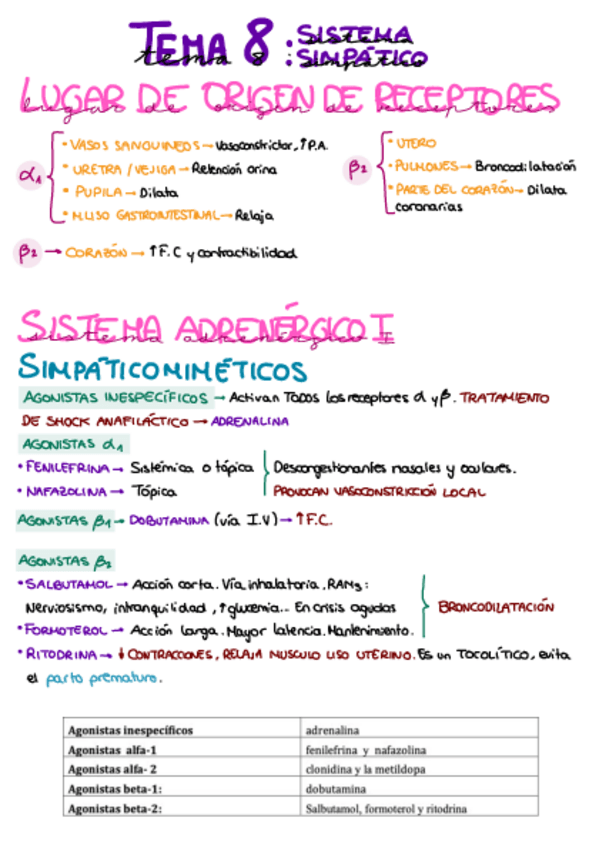 TEMA 8: SISTEMA SIMPÁTICO
tema 8: sistema simpático
LUGAR DE ORIGEN DE RECEPTORES
lugar de origen de receptores
α1
• VASOS SANGUINEOS → Vasoconstrictor, ↑P.A.
• URETRA / VEJIGA → Retención orina
• PUPILA → Dilata
• M.LISO GASTROINTESTINAL → Relaja
β2
• UTERO
• PULMONES → Broncodilatación
• PARTE DEL CORAZÓN → Dilata
coronarias
β2 → CORAZÓN → ↑F.C y contractibilidad
SISTEMA ADRENÉRGICO I
sistema adrenérgico I
SIMPÁTICOMIMÉTICOS
AGONISTAS INESPECÍFICOS → Activan TODOS los receptores α y β. TRATAMIENTO
DE SHOCK ANAFILÁCTICO → ADRENALINA
AGONISTAS α1
• FENILEFRINA → Sistémica o tópica
• NAFAZOLINA → Tópica
Descongestionantes nasales y oculares.
PROVOCAN VASOCONSTRICCIÓN LOCAL
AGONISTAS β1 → DOBUTAMINA (vía I.V) → ↑F.C.
AGONISTAS β2
• SALBUTAMOL → Acción corta. Vía inhalatoria. RAMs:
Nerviosismo, intranquilidad, ↑glucemia.. En crisis agudas
• FORMOTEROL → Acción larga. Mayor latencia. Mantenimiento.
BRONCODILATACIÓN
• RITODRINA → ↓CONTRACCIONES, RELAJA MUSCULO LISO UTERINO. Es un TOCOLÍTICO, evita
el parto prematuro.
Agonistas inespecíficos adrenalina
Agonistas alfa-1 fenilefrina y nafazolina
Agonistas alfa- 2 clonidina y la metildopa
Agonistas beta-1: dobutamina
Agonistas beta-2: Salbutamol, formoterol y ritodrina